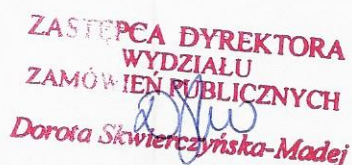 ZASTĘPCA DYREKTORA
WYDZIAŁU
ZAMÓWIEŃ PUBLICZNYCH
Dorota Skwierczyńska-Madej